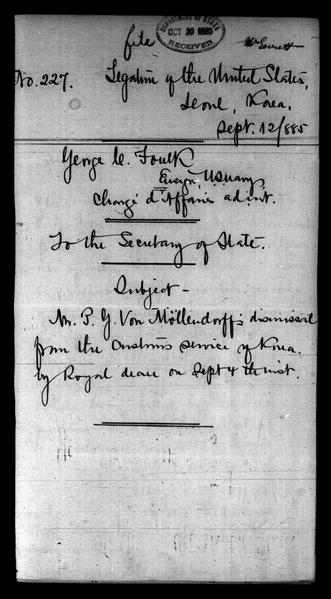 file
DEPARTMENT OF STATE
OCT 20 1885
RECEIVED
No. 227.
Legation of the United States,
Seoul, Korea,
Sept. 12/885
George C. Foulk
Ensign, U.S. Navy,
Chargé d'Affaires ad int.
To the Secretary of State.
Subject -
Mr. P. G. Von Möllendorff's dismissal
from the Customs service of Korea
by Royal decree on Sept 4th inst.